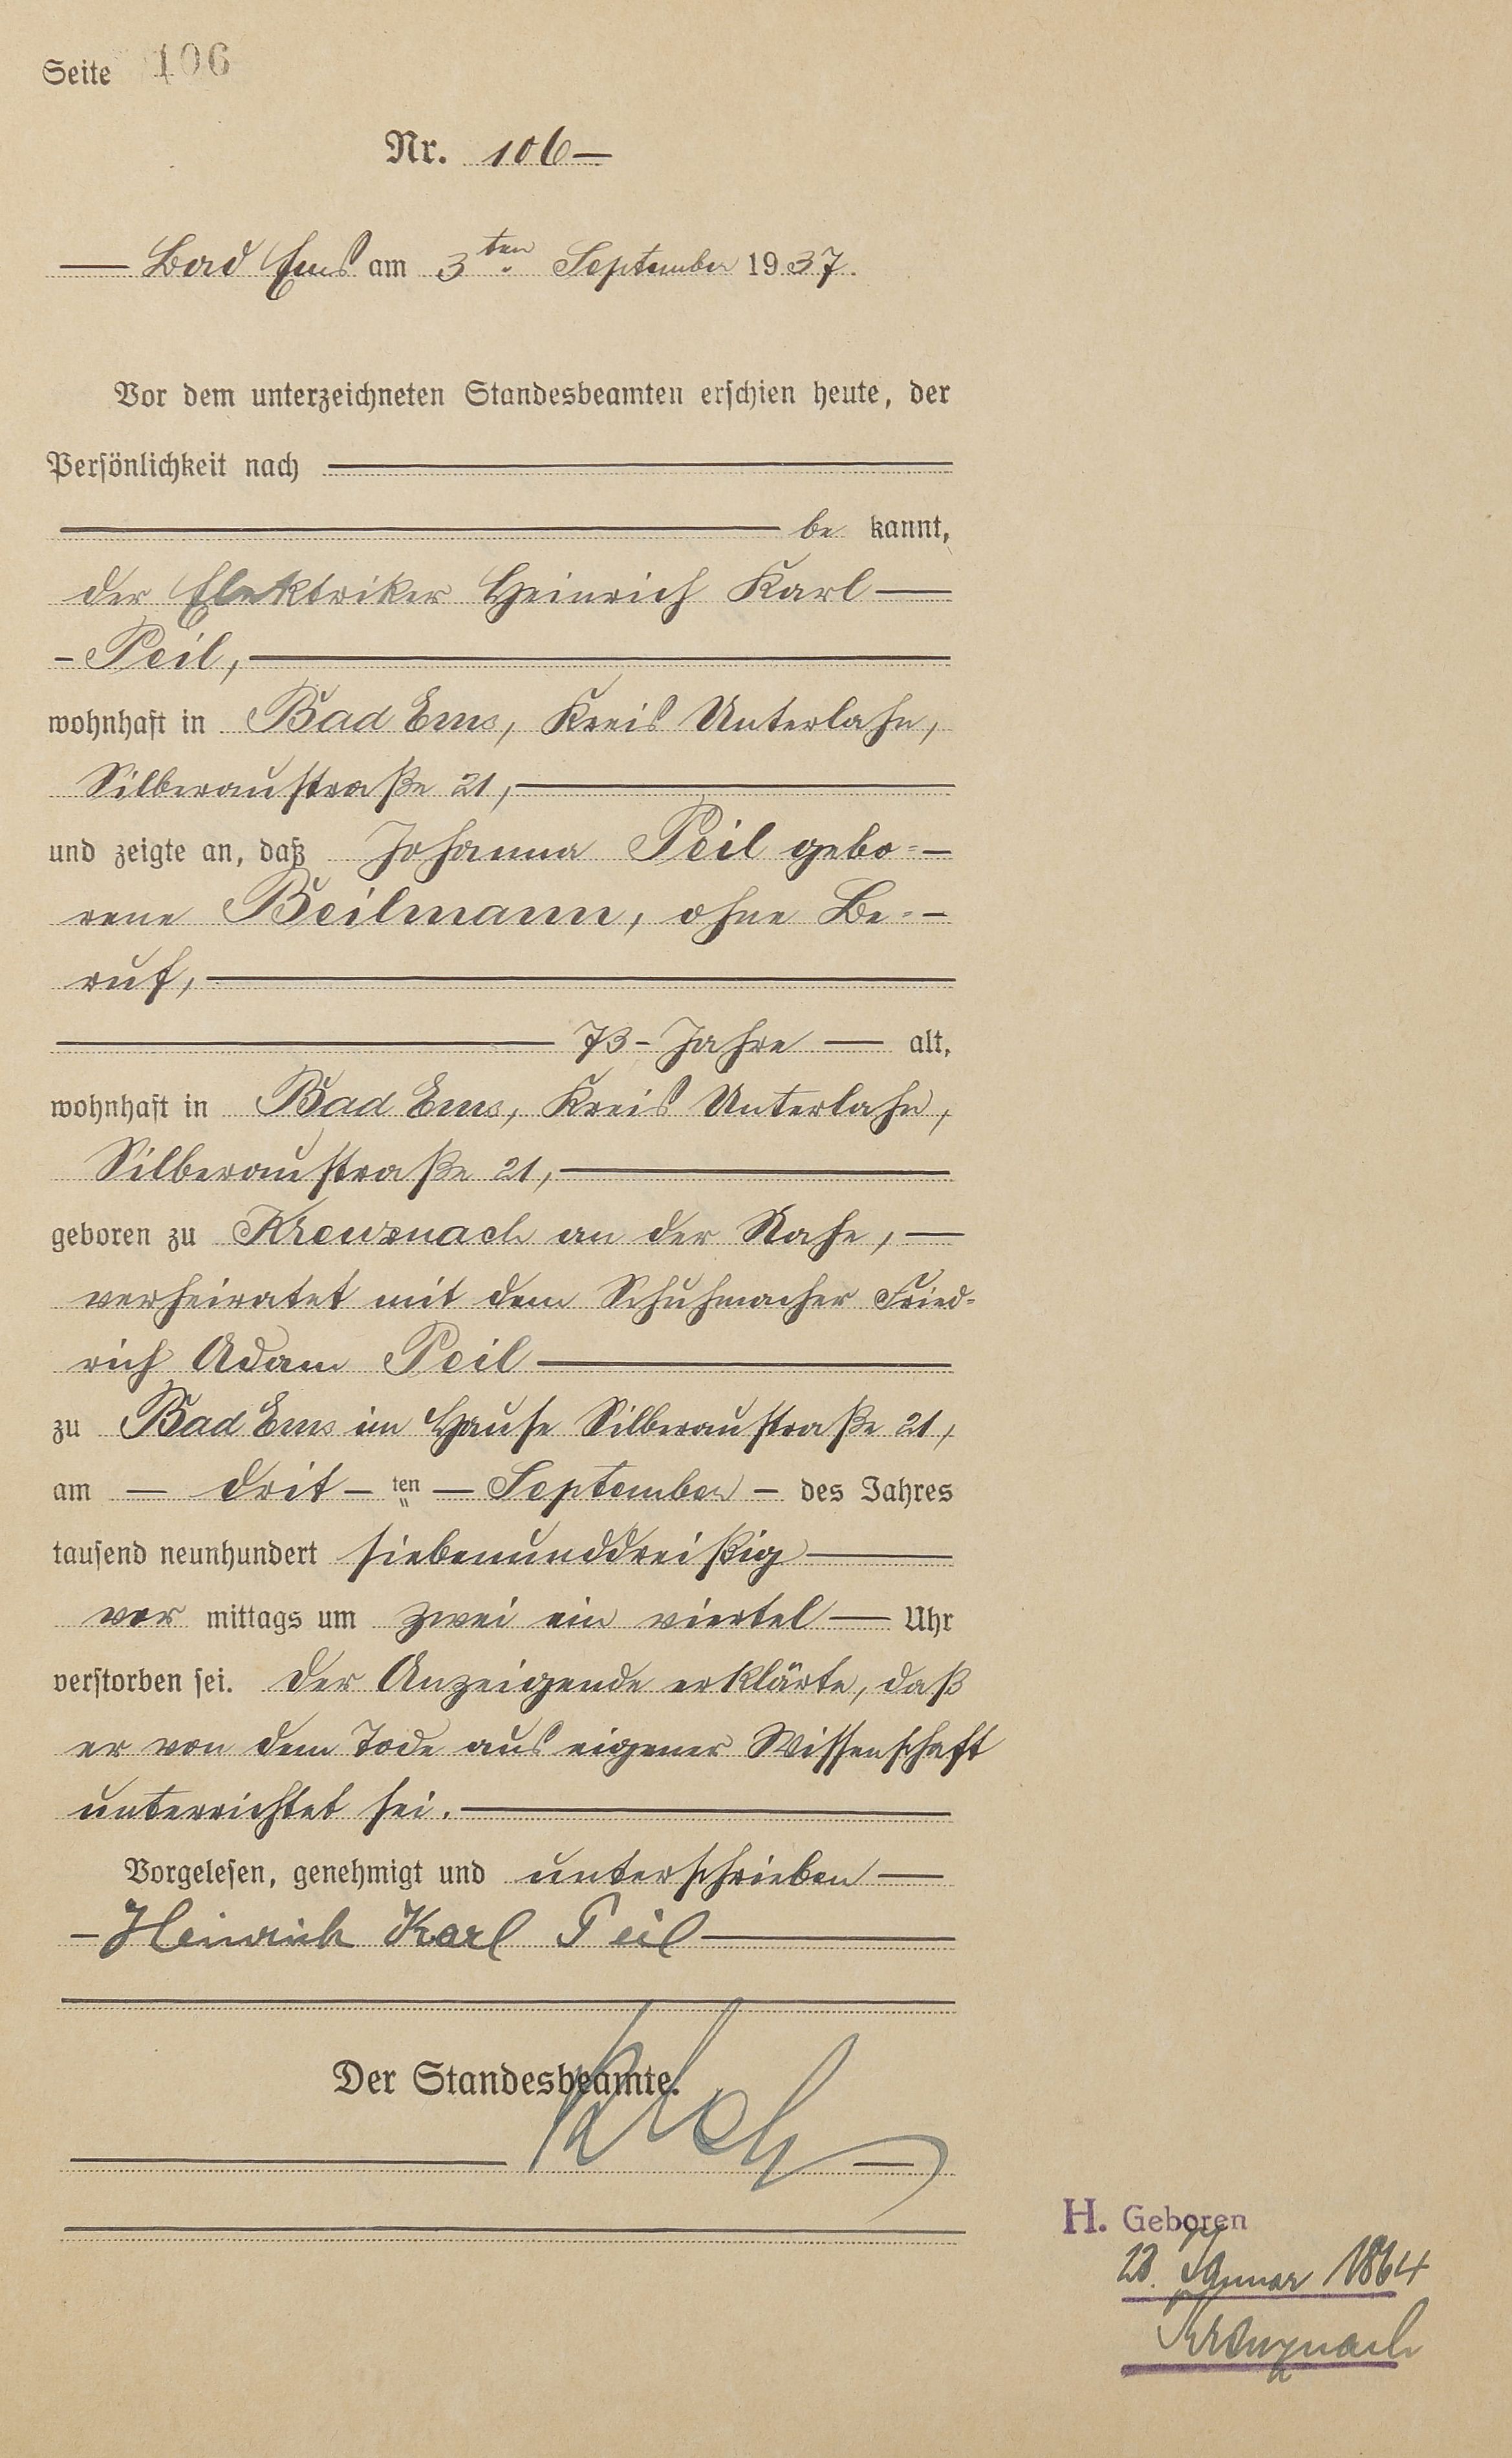 Seite 106
Nr. 106 —
— Bad Ems am 3ten September 1937.
Vor dem unterzeichneten Standesbeamten erschien heute, der
Persönlichkeit nach —
— be kannt,
der Elektriker Heinrich Karl —
- Peil, —
wohnhaft in Bad Ems, Kreis Unterlahn,
Silberaustraße 21, —
und zeigte an, daß Johanna Peil gebo= —
rene Beilmann, ohne Be= —
ruf, —
— 73 - Jahre — alt,
wohnhaft in Bad Ems, Kreis Unterlahn,
Silberaustraße 21, —
geboren zu Kreuznach an der Nahe, —
verheiratet mit dem Schuhmacher Fried=
rich Adam Peil —
zu Bad Ems im Hause Silberaustraße 21,
am — drit - ten — September - des Jahres
tausend neunhundert siebenunddreißig —
vor mittags um zwei ein viertel — Uhr
verstorben sei. Der Anzeigende erklärte, daß
er von dem Tode aus eigener Wissenschaft
unterrichtet sei. —
Vorgelesen, genehmigt und unterschrieben —
- Heinrich Karl Peil —
Der Standesbeamte.
H. Geboren
Januar 1864
Kreuznach